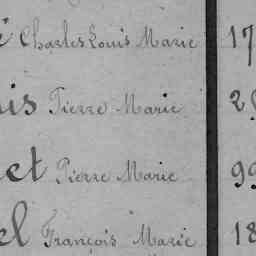 é Charles Louis Marie 17
is Pierre Marie 29
et Pierre Marie 99
el François Marie 18